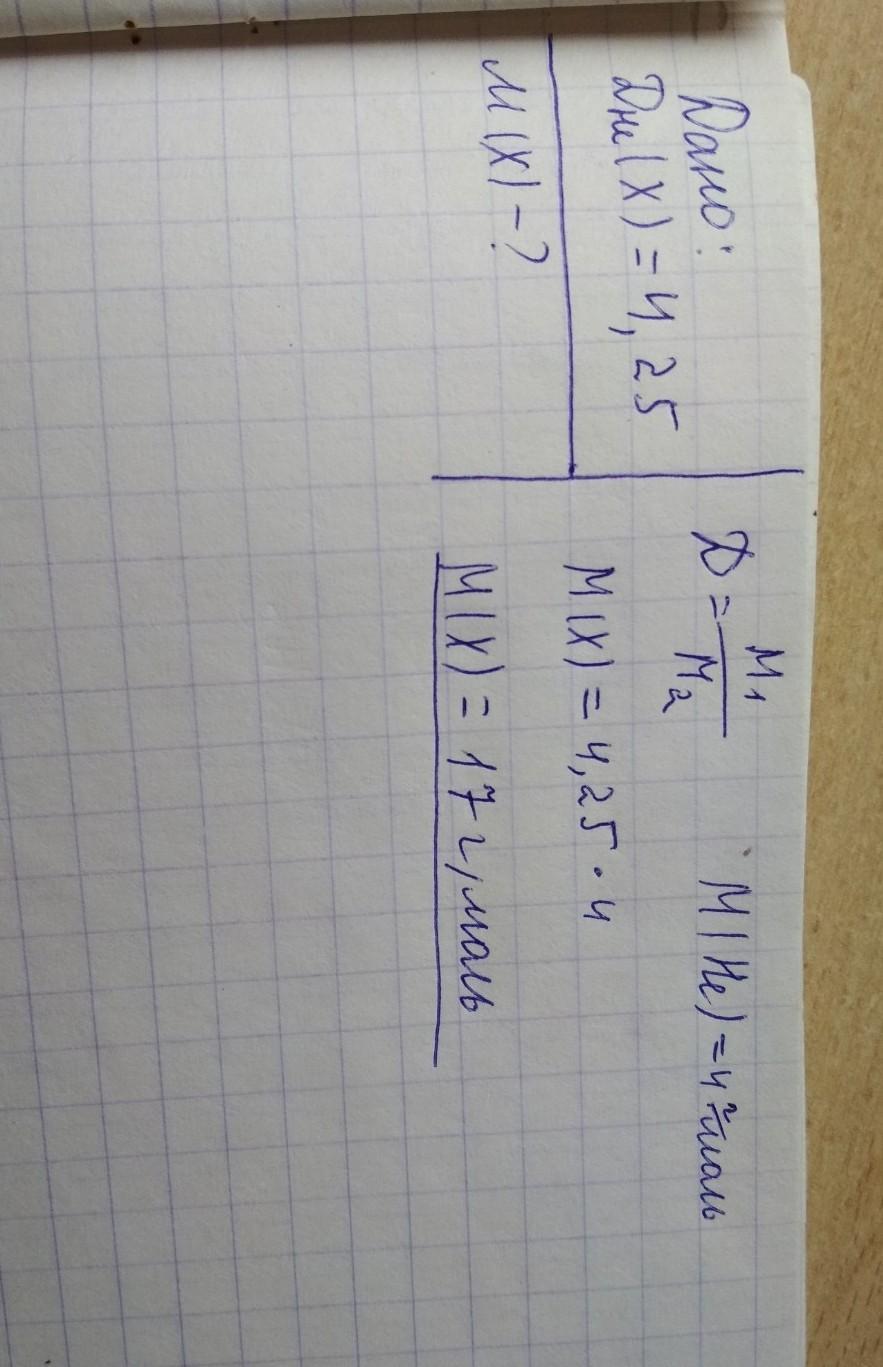 Дано:
Dне(X) = 4,25
M(X) - ?
D = M₁/M₂ M(He) = 4 г/моль
M(X) = 4,25 · 4
M(X) = 17 г/моль